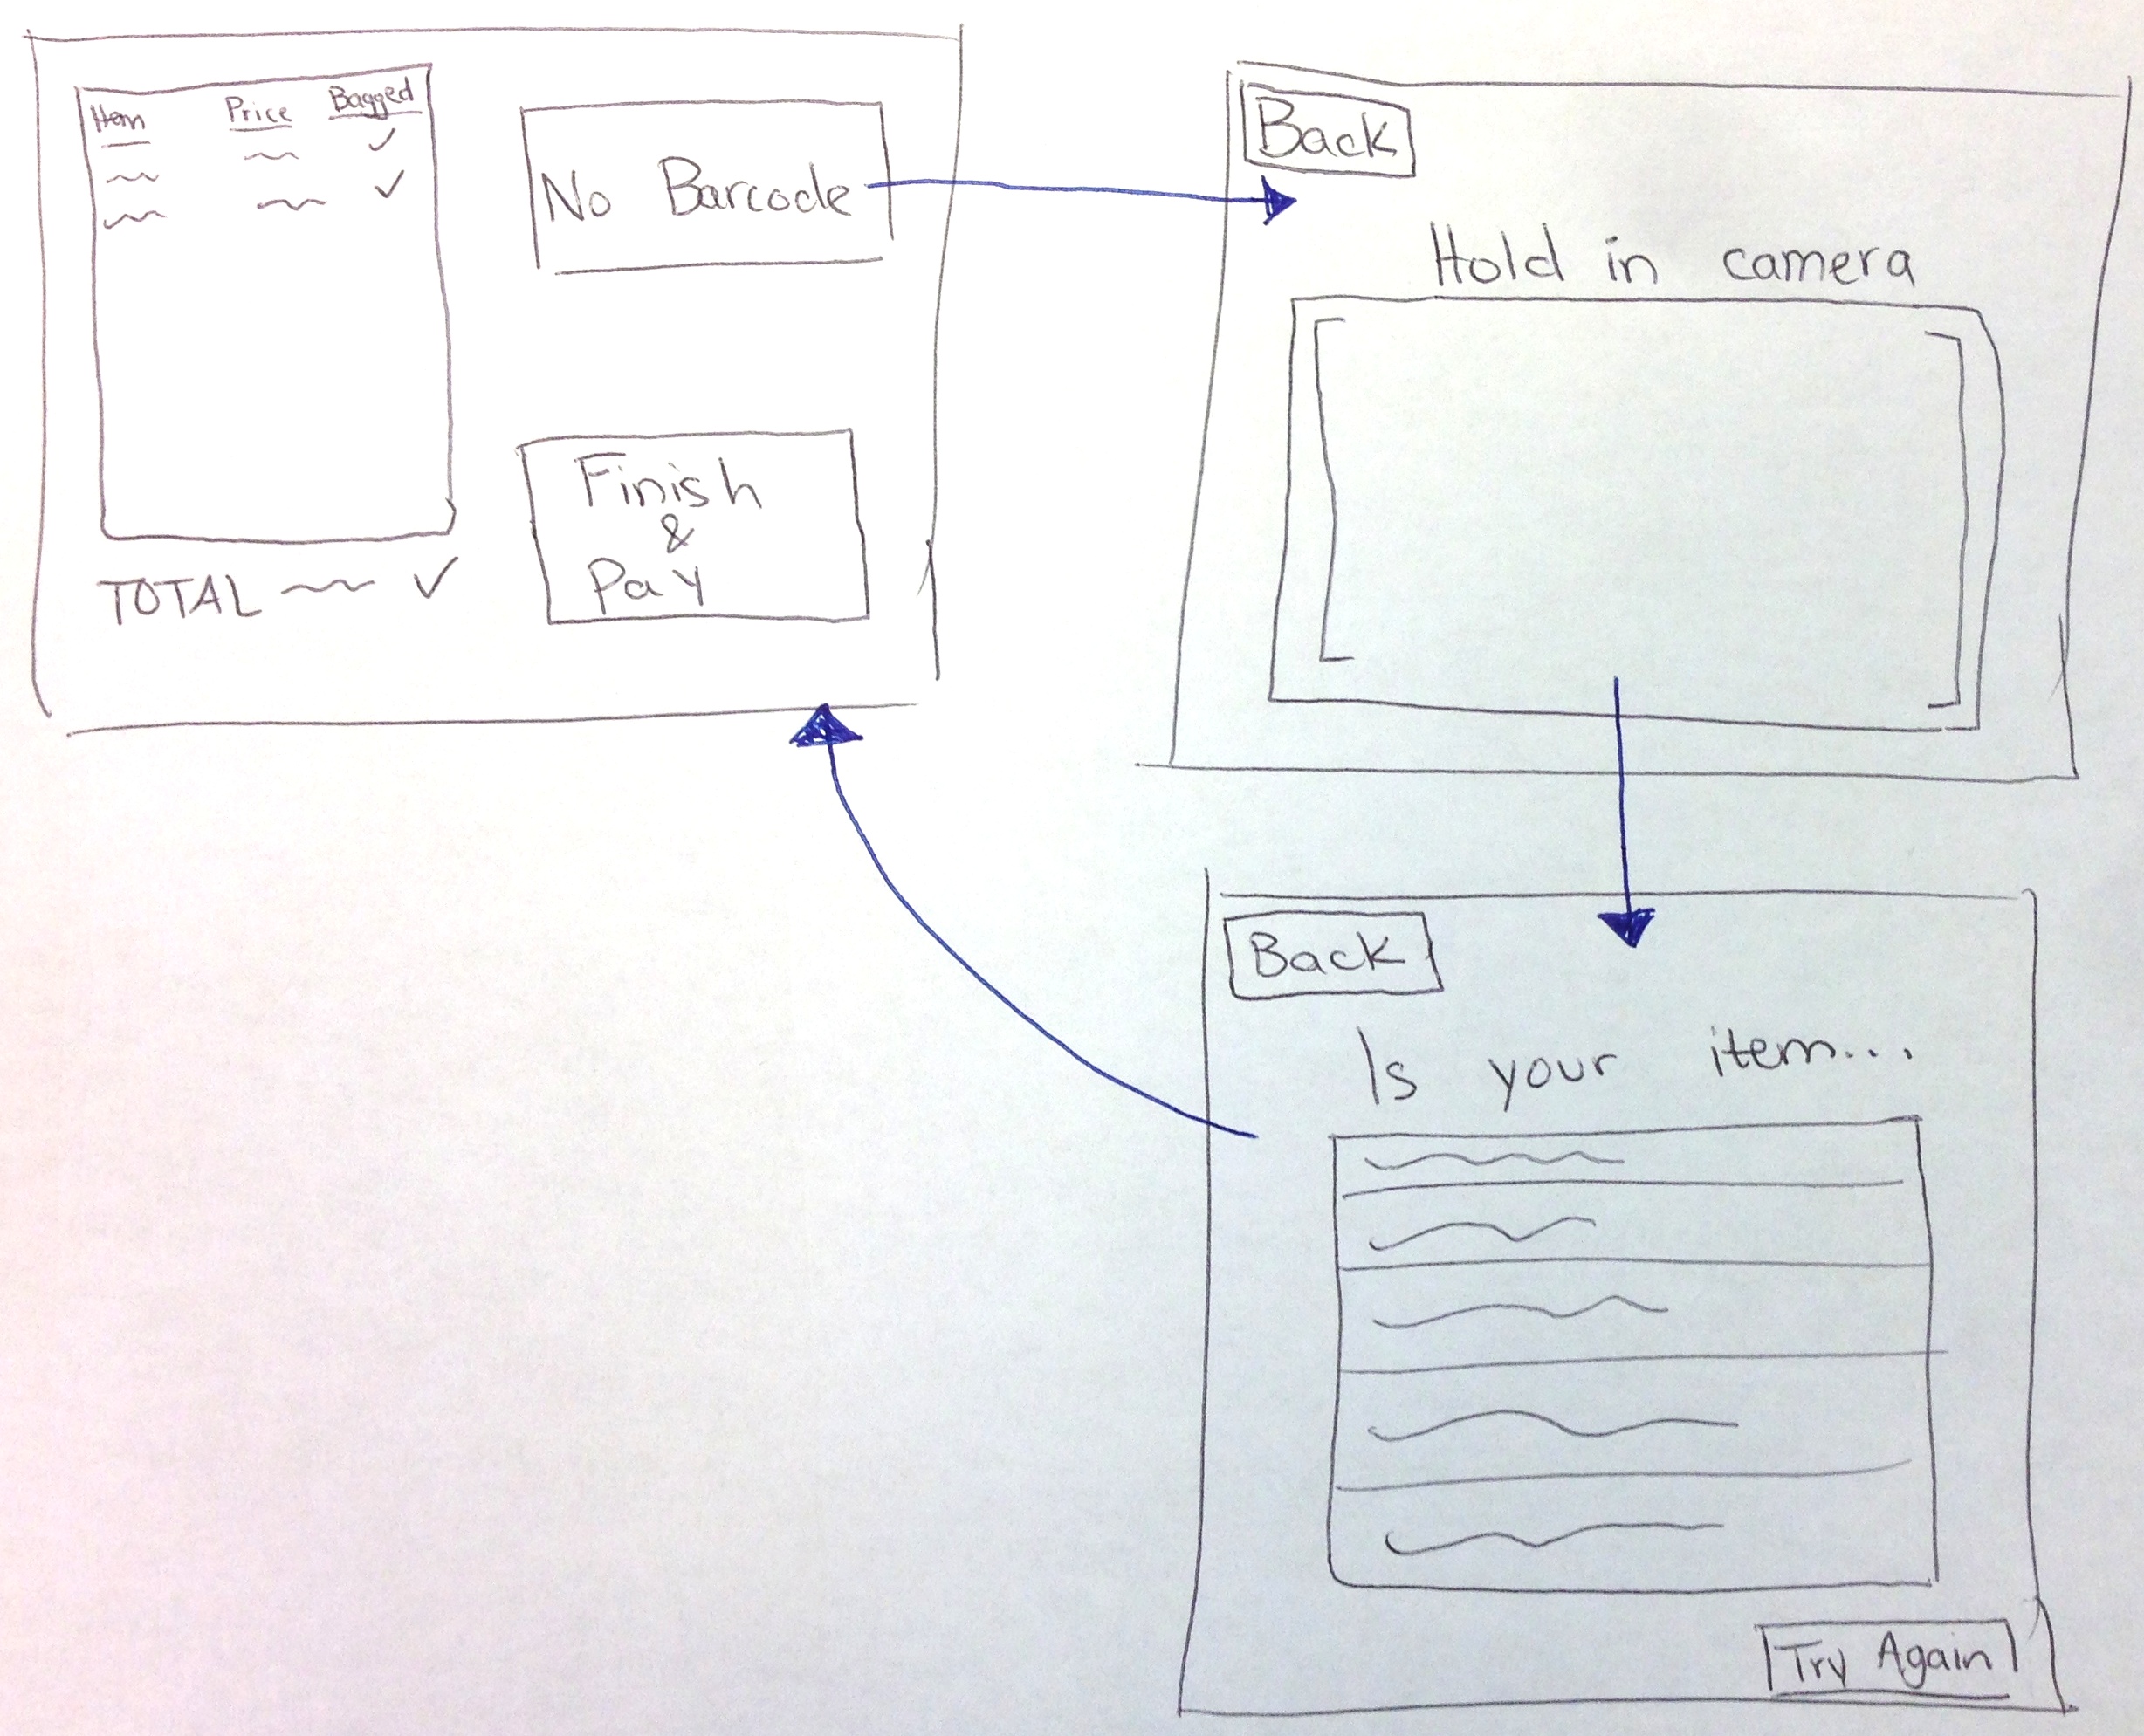 Item Price Bagged
No Barcode
Finish
&
Pay
TOTAL
Back
Hold in camera
Back
Is your item...
Try Again